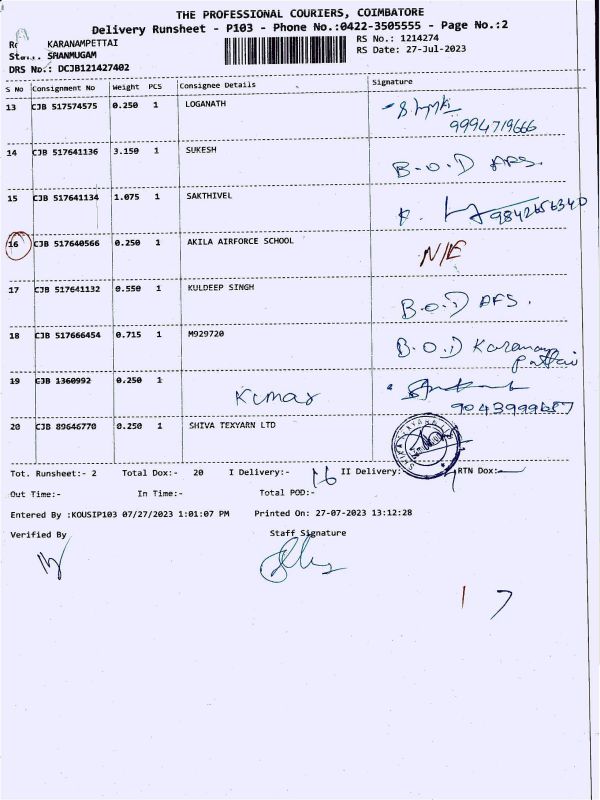 THE PROFESSIONAL COURIERS, COIMBATORE
Delivery Runsheet - P103 - Phone No.:0422-3505555 - Page No.:2
KARANAMPETTAI
RS No.: 1214274
SHANMUGAM
RS Date: 27-Jul-2023
DRS No.: DCJB121427402
S No Consignment No Weight PCS Consignee Details Signature
13 CJB 517574575 0.250 1 LOGANATH
9994719666
14 CJB 517641136 3.150 1 SUKESH
B.O.D AFS.
15 CJB 517641134 1.075 1 SAKTHIVEL
K. 9842656340
16 CJB 517640566 0.250 1 AKILA AIRFORCE SCHOOL
N/E
17 CJB 517641132 0.550 1 KULDEEP SINGH
B.O.D AFS.
18 CJB 517666454 0.715 1 M929720
B.O.D Karanam
pattai
19 CJB 1360992 0.250 1 Kumar
9043999687
20 CJB 89646770 0.250 1 SHIVA TEXYARN LTD
Tot. Runsheet:- 2 Total Dox:- 20 I Delivery:- 16 II Delivery: RTN Dox:-
Out Time:- In Time:- Total POD:-
Entered By :KOUSIP103 07/27/2023 1:01:07 PM Printed On: 27-07-2023 13:12:28
Verified By Staff Signature
1 7